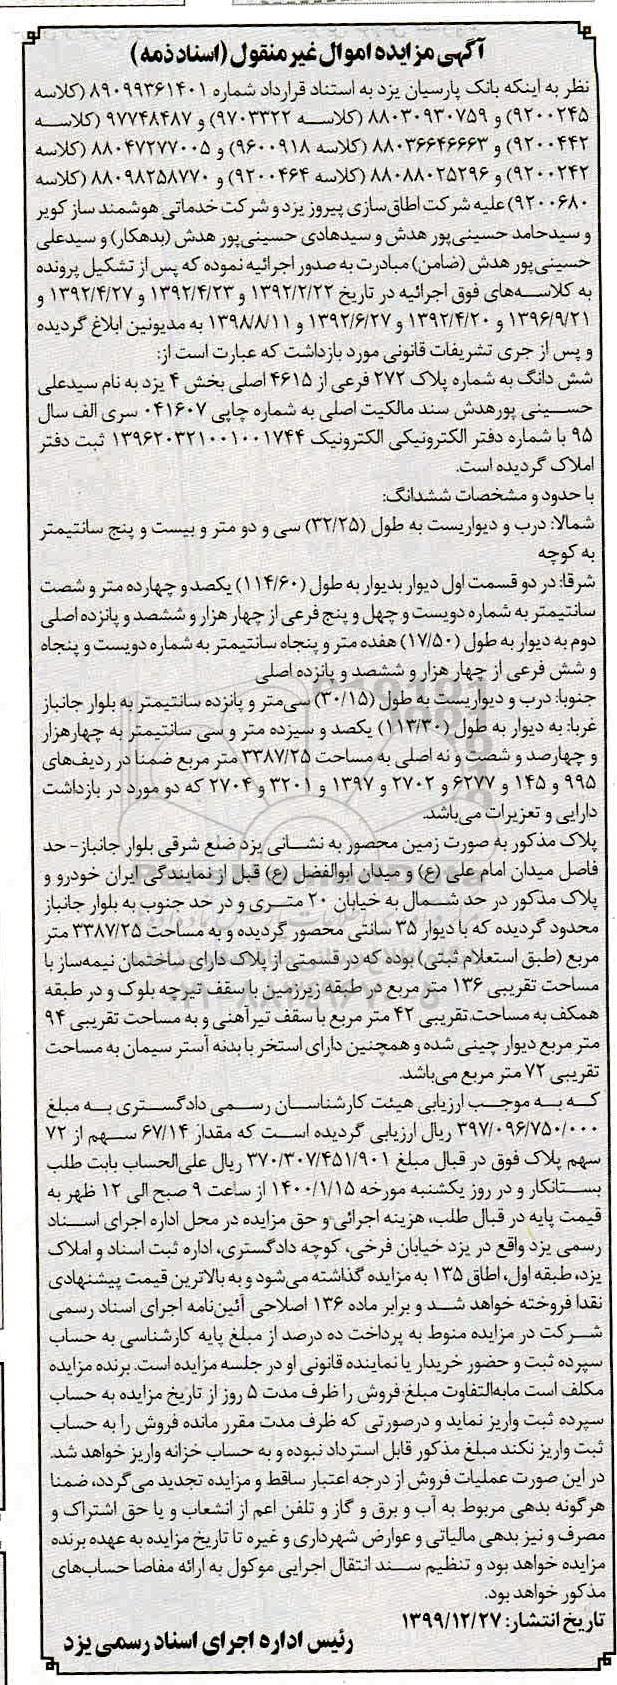 آگهی مزایده اموال غیر منقول (اسناد ذمه)
نظر به اینکه بانک پارسیان یزد به استناد قرارداد شماره ۸۹۰۹۹۳۶۱۴۰۱ (کلاسه
۹۲۰۰۲۴۵) و ۸۸۰۳۰۹۳۰۷۵۹ (کلاسه ۹۷۰۳۳۲۲) و ۹۷۷۴۸۴۸۷ (کلاسه
۹۲۰۰۴۴۲) و ۸۸۰۳۶۶۴۶۶۶۳ (کلاسه ۹۶۰۰۹۱۸) و ۸۸۰۴۷۲۷۷۰۰۵ (کلاسه
۹۲۰۰۲۴۲) و ۸۸۰۸۸۰۲۵۲۹۶ (کلاسه ۹۲۰۰۴۶۴) و ۸۸۰۹۸۲۵۸۷۷۰ (کلاسه
۹۲۰۰۶۸۰) علیه شرکت اطاق‌سازی پیروز یزد و شرکت خدماتی هوشمند ساز کویر
و سیدحامد حسینی‌پور هدش و سیدهادی حسینی‌پور هدش (بدهکار) و سیدعلی
حسینی‌پور هدش (ضامن) مبادرت به صدور اجرائیه نموده که پس از تشکیل پرونده
به کلاسه‌های فوق اجرائیه در تاریخ ۱۳۹۲/۲/۲۲ و ۱۳۹۲/۴/۲۳ و ۱۳۹۲/۴/۲۷ و
۱۳۹۶/۹/۲۱ و ۱۳۹۲/۴/۲۰ و ۱۳۹۲/۶/۲۷ و ۱۳۹۸/۸/۱۱ به مدیونین ابلاغ گردیده
و پس از جری تشریفات قانونی مورد بازداشت که عبارت است از:
شش دانگ به شماره پلاک ۲۷۲ فرعی از ۴۶۱۵ اصلی بخش ۴ یزد به نام سیدعلی
حسینی پورهدش سند مالکیت اصلی به شماره چاپی ۰۴۱۶۰۷ سری الف سال
۹۵ با شماره دفتر الکترونیکی الکترونیک ۱۳۹۶۲۰۳۲۱۰۰۱۰۰۱۷۴۴ ثبت دفتر
املاک گردیده است.
با حدود و مشخصات ششدانگ:
شمالا: درب و دیواریست به طول (۳۲/۲۵) سی و دو متر و بیست و پنج سانتیمتر
به کوچه
شرقا: در دو قسمت اول دیوار بدیوار به طول (۱۱۴/۶۰) یکصد و چهارده متر و شصت
سانتیمتر به شماره دویست و چهل و پنج فرعی از چهار هزار و ششصد و پانزده اصلی
دوم به دیوار به طول (۱۷/۵۰) هفده متر و پنجاه سانتیمتر به شماره دویست و پنجاه
و شش فرعی از چهار هزار و ششصد و پانزده اصلی
جنوبا: درب و دیواریست به طول (۳۰/۱۵) سی‌متر و پانزده سانتیمتر به بلوار جانباز
غربا: به دیوار به طول (۱۱۳/۳۰) یکصد و سیزده متر و سی سانتیمتر به چهارهزار
و چهارصد و شصت و نه اصلی به مساحت ۳۳۸۷/۲۵ متر مربع ضمنا در ردیف‌های
۹۹۵ و ۱۴۵ و ۶۲۷۷ و ۲۷۰۲ و ۱۳۹۷ و ۳۲۰۱ و ۲۷۰۴ که دو مورد در بازداشت
دارایی و تعزیرات می‌باشد.
پلاک مذکور به صورت زمین محصور به نشانی یزد ضلع شرقی بلوار جانباز- حد
فاصل میدان امام علی (ع) و میدان ابوالفضل (ع) قبل از نمایندگی ایران خودرو و
پلاک مذکور در حد شمال به خیابان ۲۰ متری و در حد جنوب به بلوار جانباز
محدود گردیده که با دیوار ۳۵ سانتی محصور گردیده و به مساحت ۳۳۸۷/۲۵ متر
مربع (طبق استعلام ثبتی) بوده که در قسمتی از پلاک دارای ساختمان نیمه‌ساز با
مساحت تقریبی ۱۳۶ متر مربع در طبقه زیرزمین با سقف تیرچه بلوک و در طبقه
همکف به مساحت تقریبی ۴۲ متر مربع با سقف تیرآهنی و به مساحت تقریبی ۹۴
متر مربع دیوار چینی شده و همچنین دارای استخر با بدنه آستر سیمان به مساحت
تقریبی ۷۲ متر مربع می‌باشد.
که به موجب ارزیابی هیئت کارشناسان رسمی دادگستری به مبلغ
۳۹۷/۰۹۶/۷۵۰/۰۰۰ ریال ارزیابی گردیده است که مقدار ۶۷/۱۴ سهم از ۷۲
سهم پلاک فوق در قبال مبلغ ۳۷۰/۳۰۷/۴۵۱/۹۰۱ ریال علی‌الحساب بابت طلب
بستانکار و در روز یکشنبه مورخه ۱۴۰۰/۱/۱۵ از ساعت ۹ صبح الی ۱۲ ظهر به
قیمت پایه در قبال طلب، هزینه اجرائی و حق مزایده در محل اداره اجرای اسناد
رسمی یزد واقع در یزد خیابان فرخی، کوچه دادگستری، اداره ثبت اسناد و املاک
یزد، طبقه اول، اطاق ۱۳۵ به مزایده گذاشته می‌شود و به بالاترین قیمت پیشنهادی
نقدا فروخته خواهد شد و برابر ماده ۱۳۶ اصلاحی آئین‌نامه اجرای اسناد رسمی
شرکت در مزایده منوط به پرداخت ده درصد از مبلغ پایه کارشناسی به حساب
سپرده ثبت و حضور خریدار یا نماینده قانونی او در جلسه مزایده است. برنده مزایده
مکلف است مابه‌التفاوت مبلغ فروش را ظرف مدت ۵ روز از تاریخ مزایده به حساب
سپرده ثبت واریز نماید و درصورتی که ظرف مدت مقرر مانده فروش را به حساب
ثبت واریز نکند مبلغ مذکور قابل استرداد نبوده و به حساب خزانه واریز خواهد شد.
در این صورت عملیات فروش از درجه اعتبار ساقط و مزایده تجدید می‌گردد، ضمنا
هرگونه بدهی مربوط به آب و برق و گاز و تلفن اعم از انشعاب و یا حق اشتراک و
مصرف و نیز بدهی مالیاتی و عوارض شهرداری و غیره تا تاریخ مزایده به عهده برنده
مزایده خواهد بود و تنظیم سند انتقال اجرایی موکول به ارائه مفاصا حساب‌های
مذکور خواهد بود.
تاریخ انتشار: ۱۳۹۹/۱۲/۲۷
رئیس اداره اجرای اسناد رسمی یزد